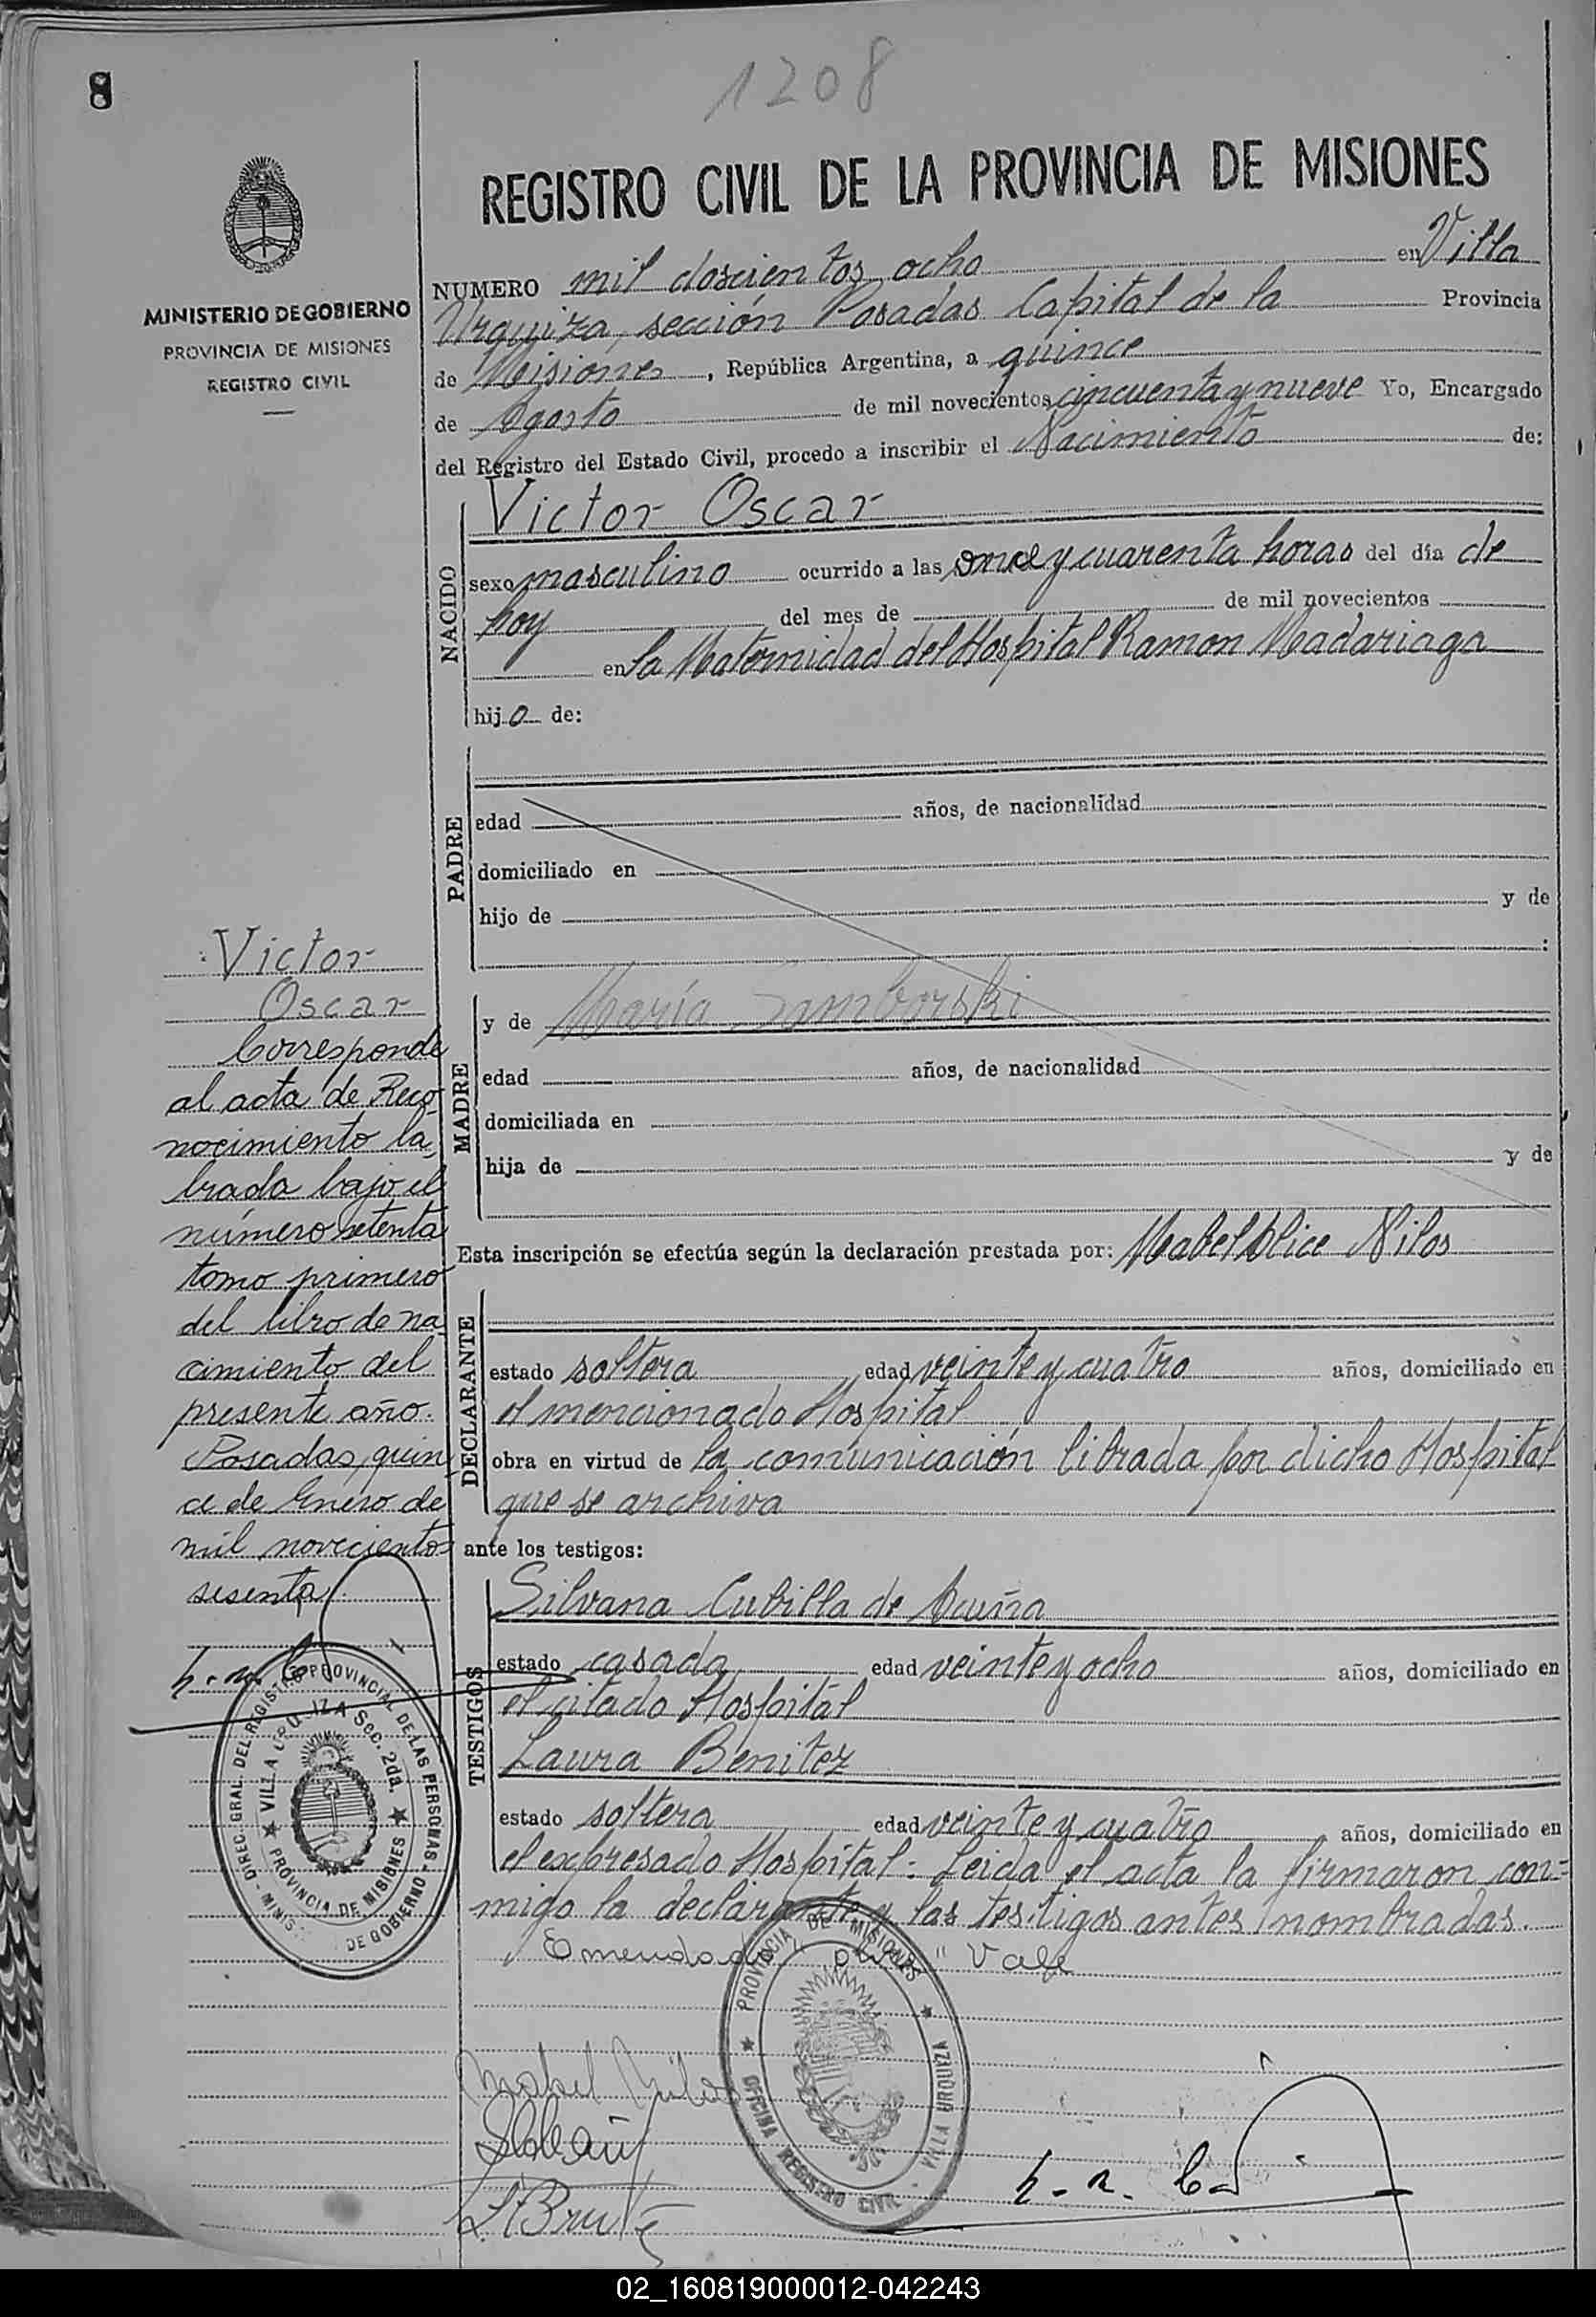 8
1208
REGISTRO CIVIL DE LA PROVINCIA DE MISIONES
MINISTERIO DE GOBIERNO
PROVINCIA DE MISIONES
REGISTRO CIVIL
NUMERO mil doscientos ocho en Villa
Urquiza, sección Posadas Capital de la Provincia
de Misiones, República Argentina, a quince
de Agosto de mil novecientos cincuenta y nueve Yo, Encargado
del Registro del Estado Civil, procedo a inscribir el Nacimiento de:
NACIDO
Victor Oscar
sexo masculino ocurrido a las once y cuarenta horas del día de
hoy del mes de de mil novecientos
en la Maternidad del Hospital Ramon Madariaga
hijo de:
PADRE
edad años, de nacionalidad
domiciliado en
hijo de y de
:
MADRE
y de María Samborski
edad años, de nacionalidad
domiciliada en
hija de y de
Esta inscripción se efectúa según la declaración prestada por: Mabel Alice Nilos
DECLARANTE
estado soltera edad veinte y cuatro años, domiciliado en
el mencionado Hospital
obra en virtud de la comunicación librada por dicho Hospital
que se archiva
ante los testigos:
TESTIGOS
Silvana Cubilla de Acuña
estado casada edad veinte y ocho años, domiciliado en
el citado Hospital
Laura Benitez
estado soltera edad veinte y cuatro años, domiciliado en
el expresado Hospital. Leida el acta la firmaron con-
migo la declarante y las testigos antes nombradas.
Emendado " Vale
Victor
Oscar
Corresponde
al acta de Reco
nocimiento la
brada bajo el
número setenta
tomo primero
del libro de na
cimiento del
presente año.
Posadas, quin
ce de Enero de
mil novecientos
sesenta.
DIREC. GRAL. DEL REGISTRO PROVINCIAL DE LAS PERSONAS - MINIS. DE GOBIERNO
VILLA URQUIZA Sec. 2da. ★ PROVINCIA DE MISIONES ★
PROVINCIA DE MISIONES ★ VILLA URQUIZA - OFICINA REGISTRO CIVIL ★
Mabel Nilos
02_160819000012-042243